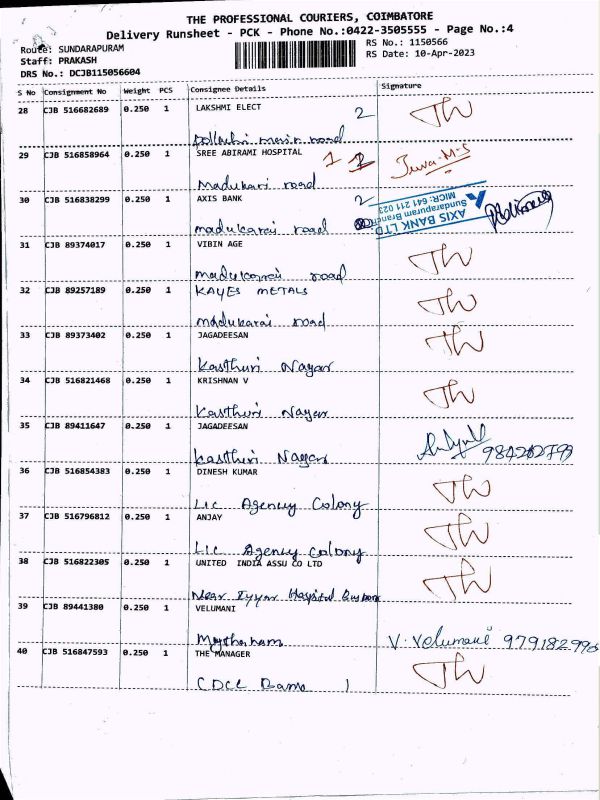 THE PROFESSIONAL COURIERS, COIMBATORE
Delivery Runsheet - PCK - Phone No.:0422-3505555 - Page No.:4
Route: SUNDARAPURAM
RS No.: 1150566
Staff: PRAKASH
RS Date: 10-Apr-2023
DRS No.: DCJB115056604
S No Consignment No Weight PCS Consignee Details Signature
28 CJB 516682689 0.250 1 LAKSHMI ELECT 2
Pollachi main road
29 CJB 516858964 0.250 1 SREE ABIRAMI HOSPITAL 1
Madukari road
30 CJB 516838299 0.250 1 AXIS BANK 2
AXIS BANK LTD.
Sundarapuram Branch
MICR: 641 211 023
madukarai road
31 CJB 89374017 0.250 1 VIBIN AGE
madukarai road
32 CJB 89257189 0.250 1 KAYES METALS
madukarai road
33 CJB 89373402 0.250 1 JAGADEESAN
Kasthuri Nagar
34 CJB 516821468 0.250 1 KRISHNAN V
Kasthuri Nagar
35 CJB 89411647 0.250 1 JAGADEESAN
Kasthuri Nagar
36 CJB 516854383 0.250 1 DINESH KUMAR
Lic Agency Colony
37 CJB 516796812 0.250 1 ANJAY
Lic Agency Colony
38 CJB 516822305 0.250 1 UNITED INDIA ASSU CO LTD
Near Iyyar Hospital
39 CJB 89441380 0.250 1 VELUMANI
V. Velumani
40 CJB 516847593 0.250 1 THE MANAGER
1